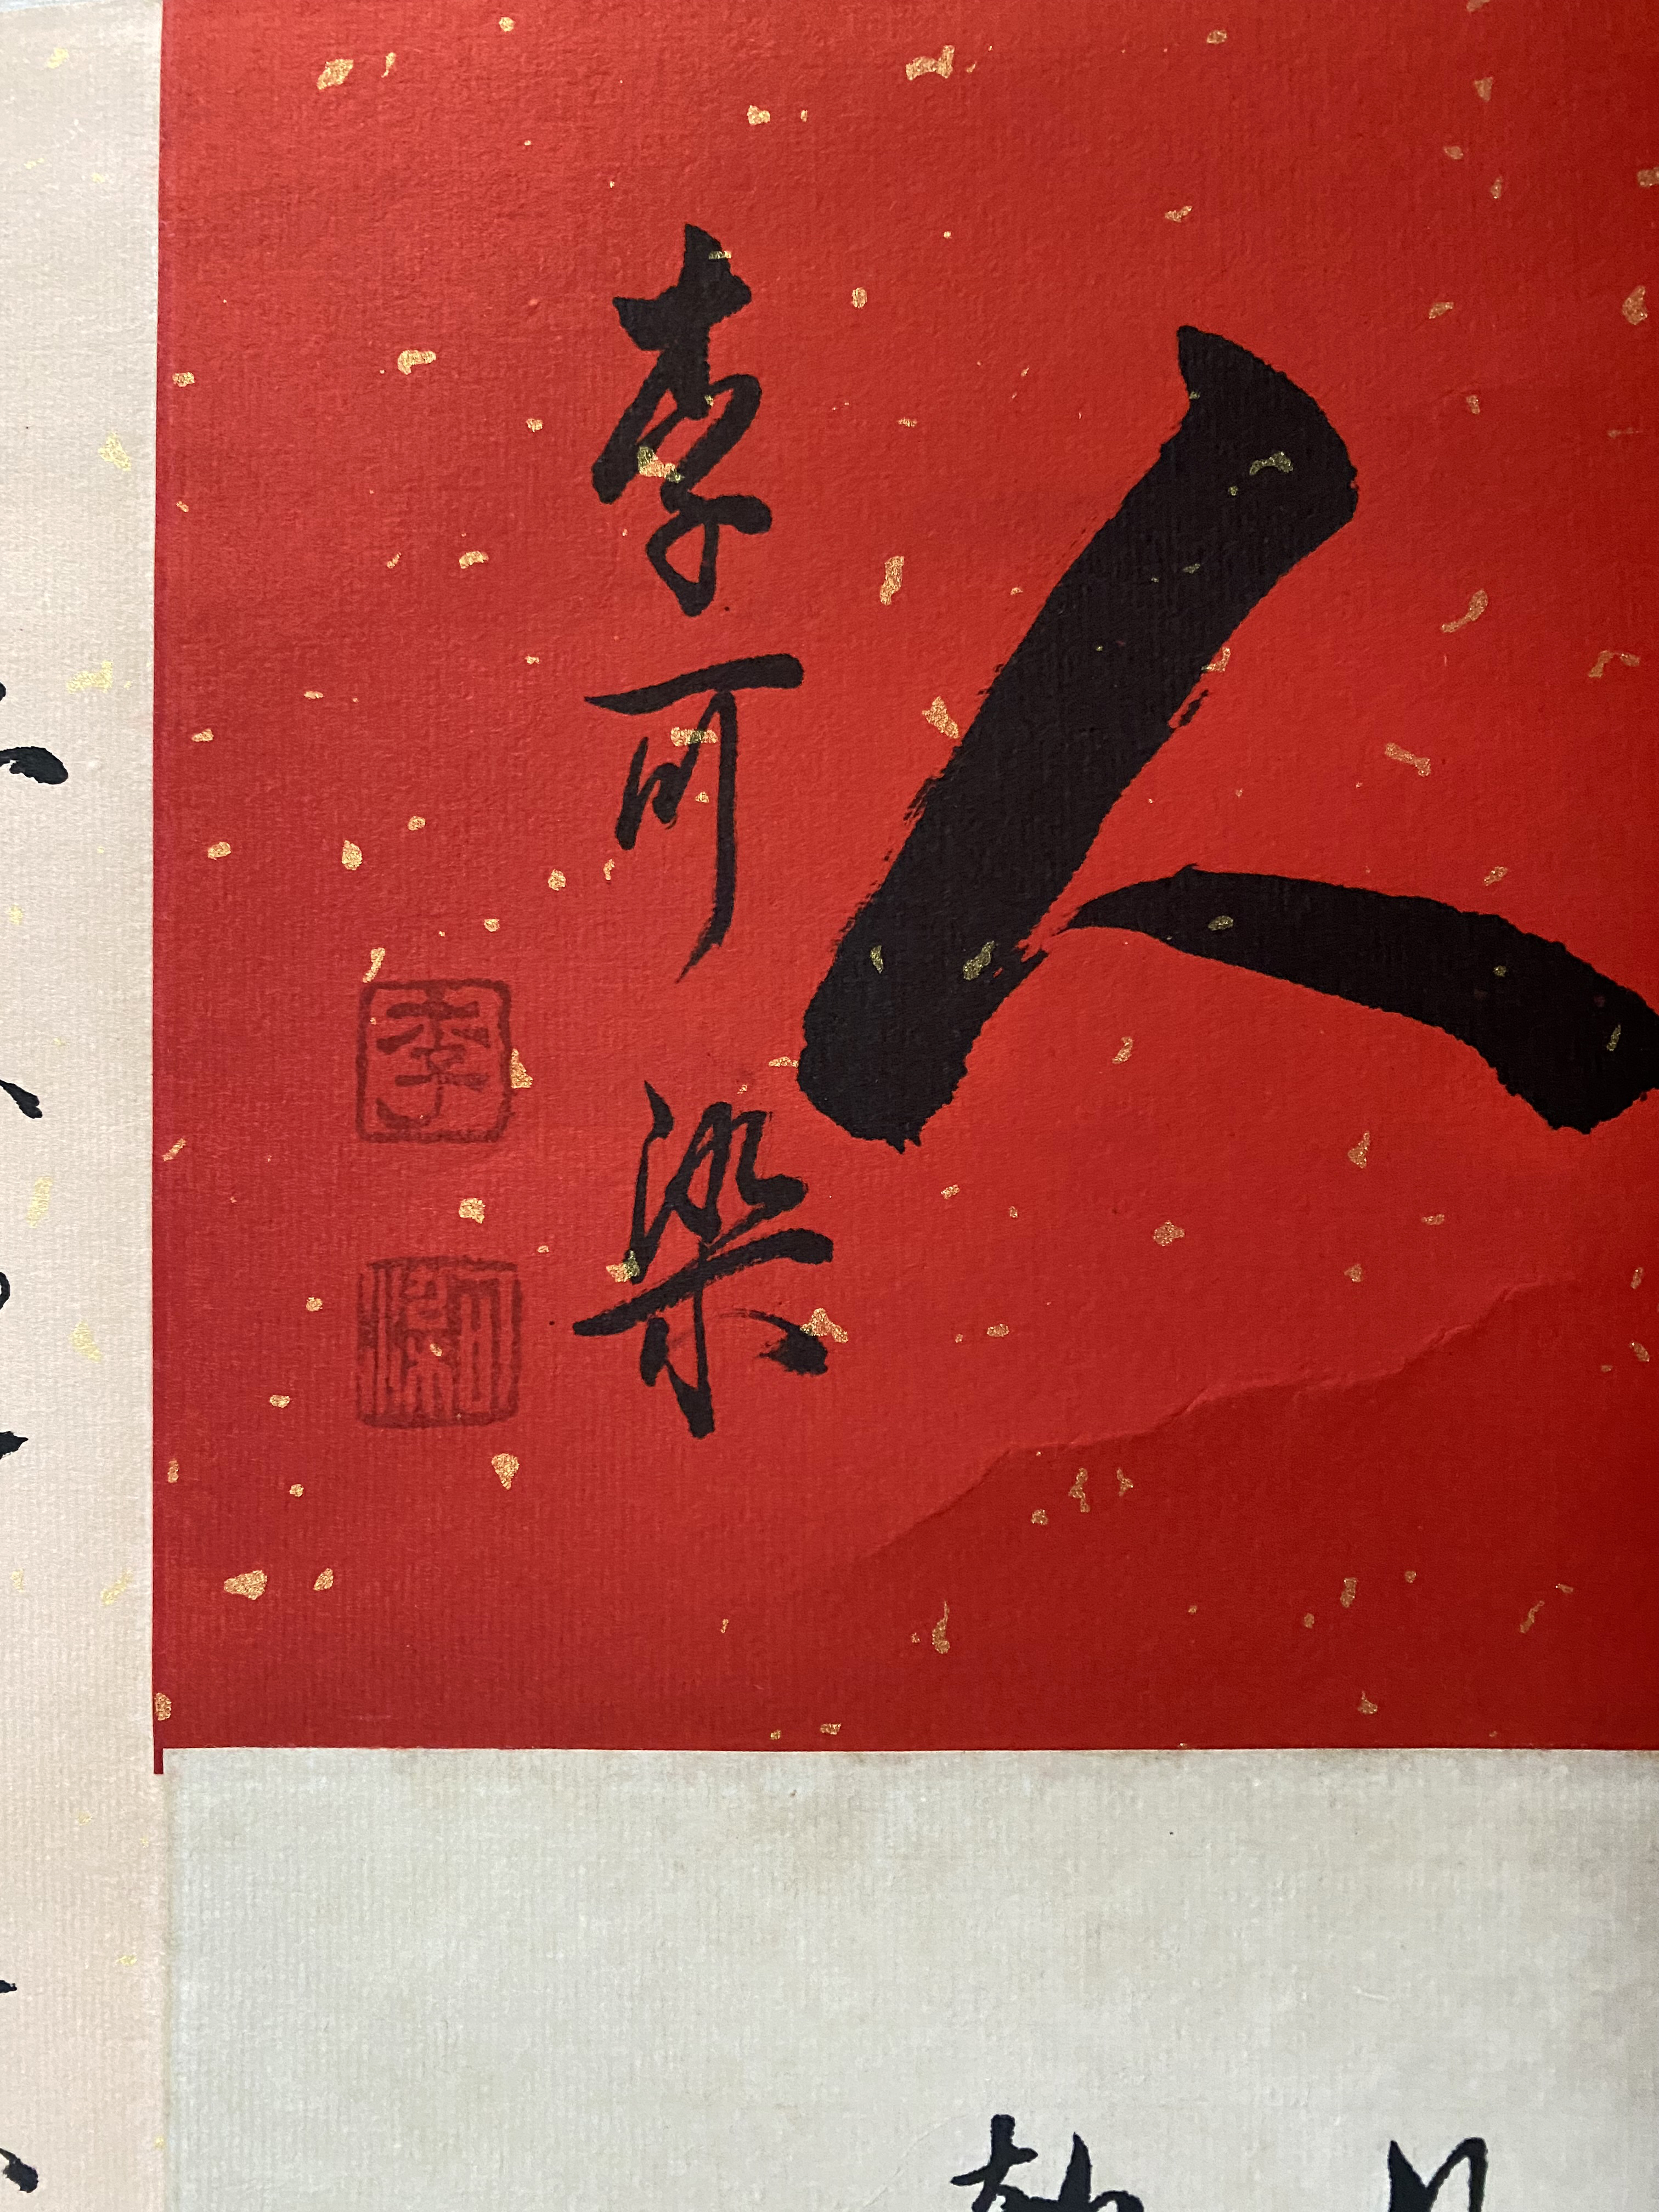 人
李可染
李
可染